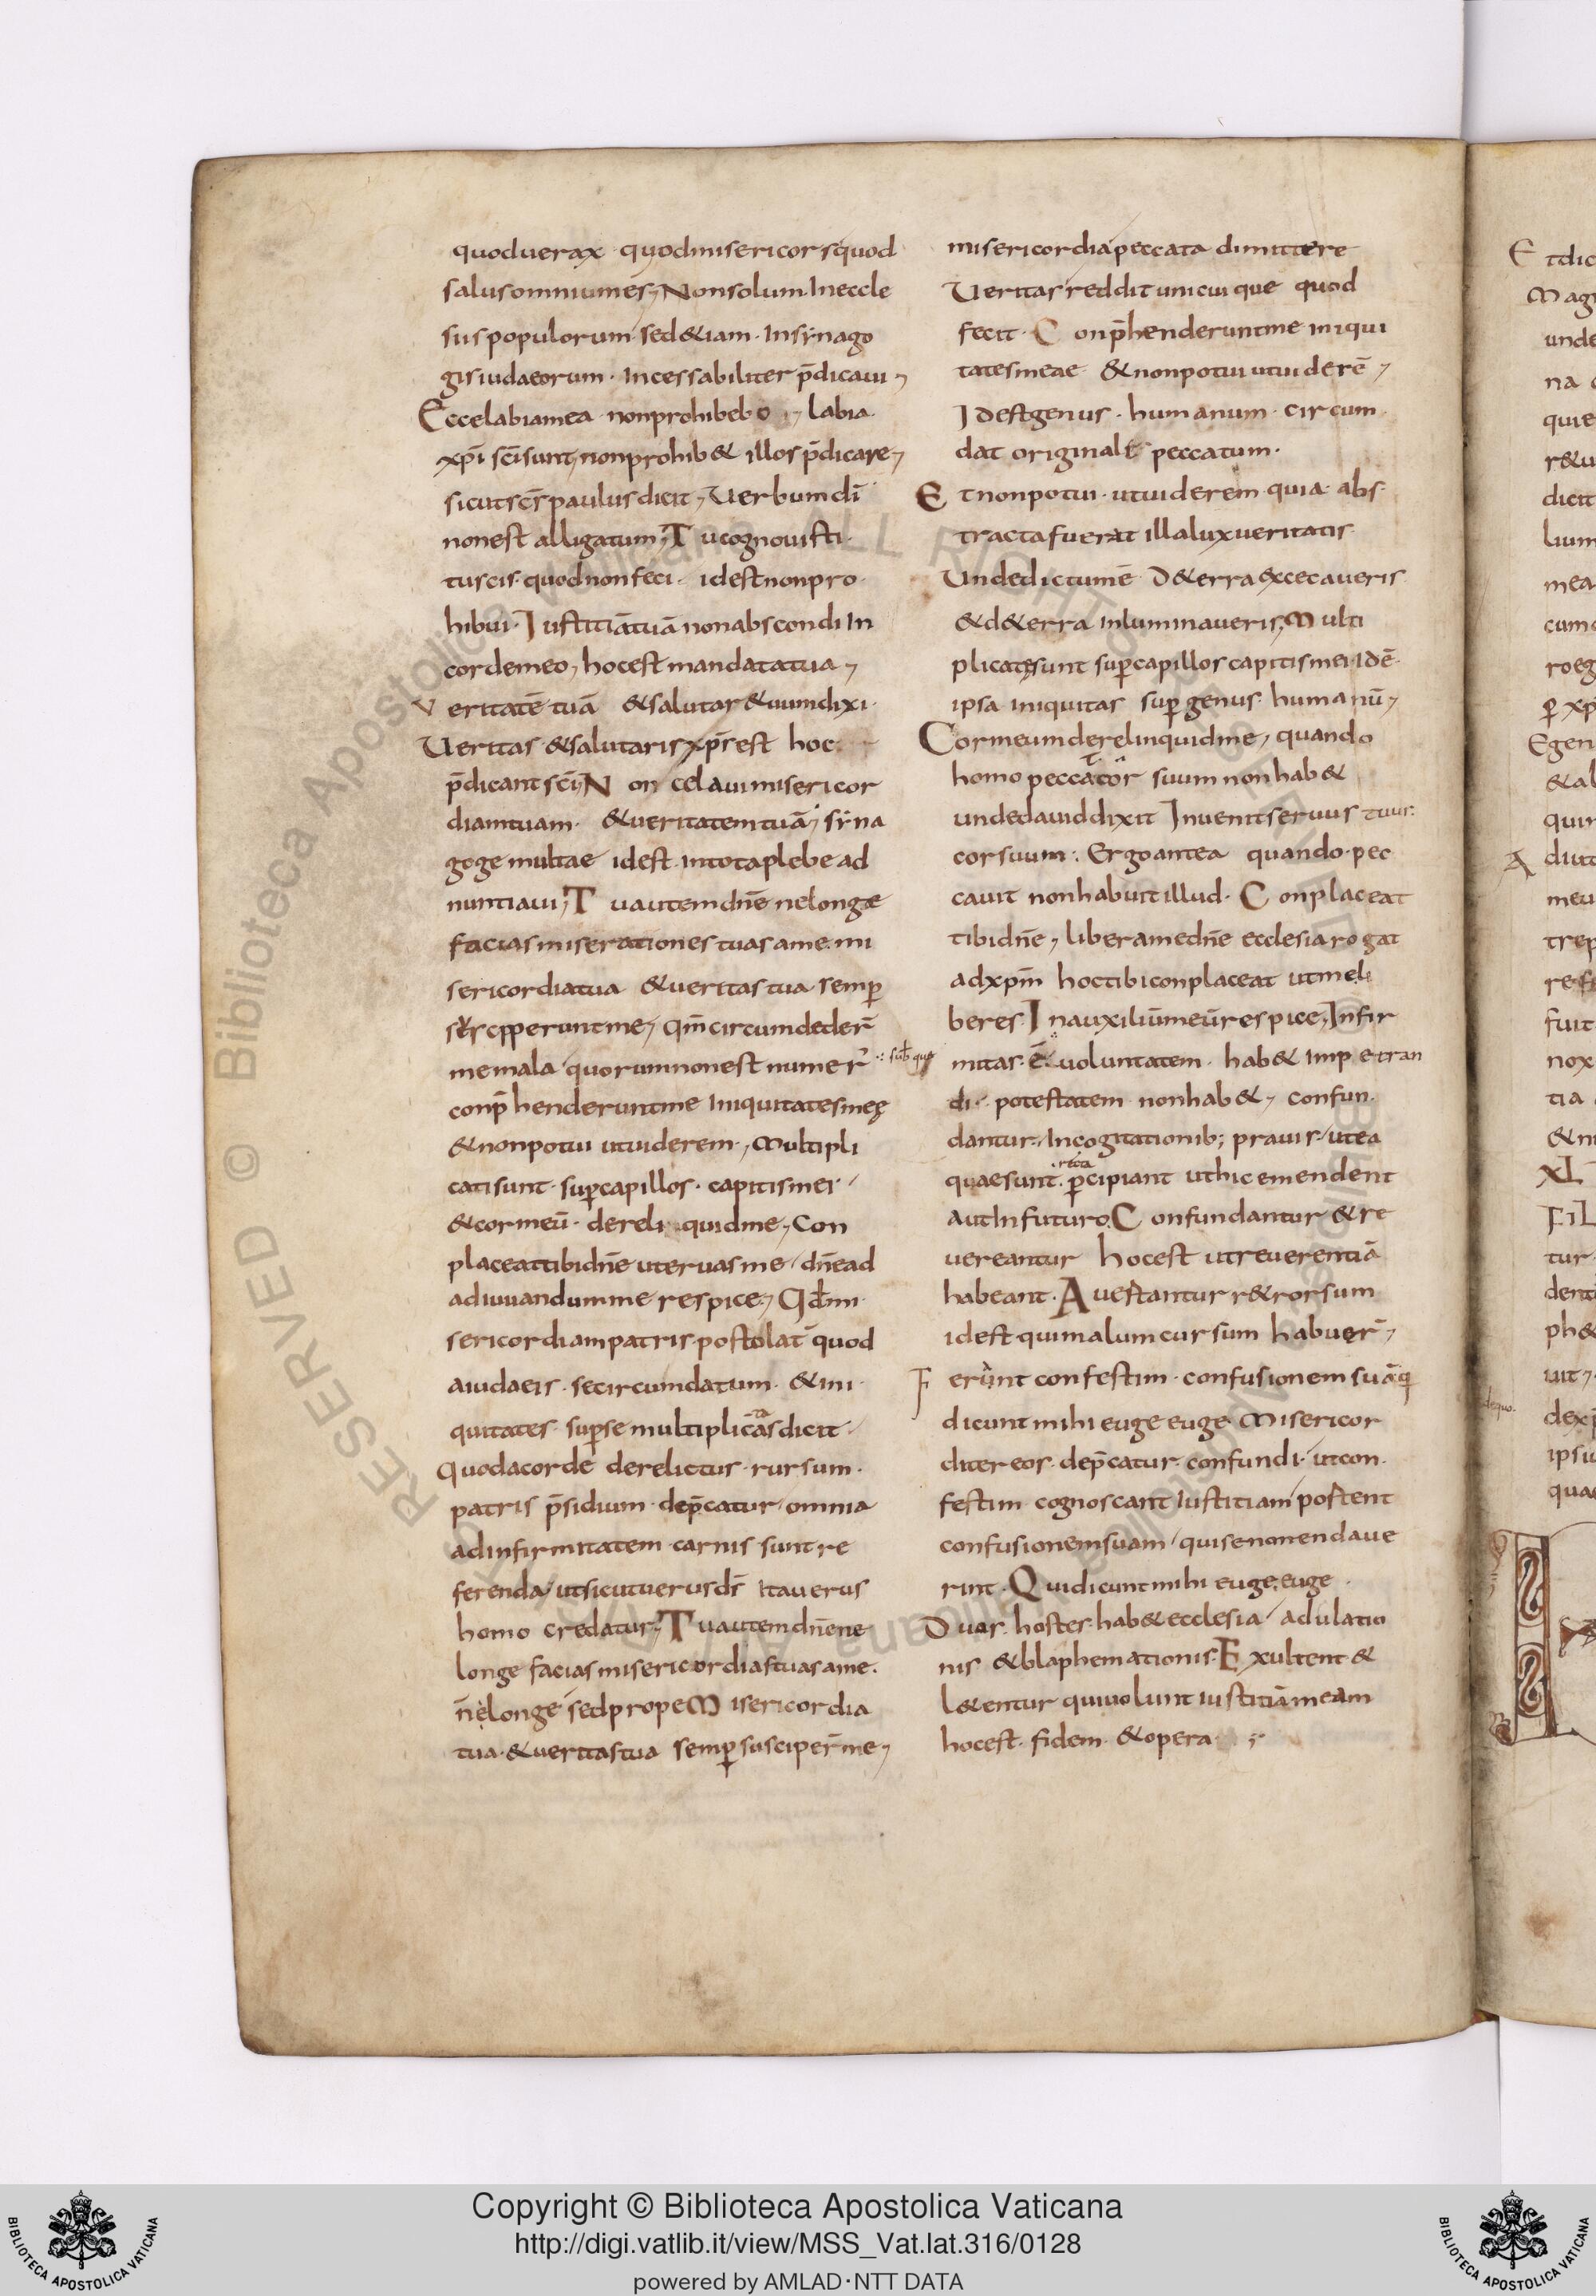 quoduerax quodmisericors quod
salusomniumes, Nonsolum Ineccle
siis populorum sed&iam Insÿnago
gisiudaeorum · Incessabiliter p̄dicaui,
Eccelabiamea nonprohibebo, labia
xp̄i sc̄isunt, nonprohib& illos p̄dicare,
sicutsc̄s paulus dicit, Uerbum dī
nonest alligatum, Tu cognouisti
tuscis quodnonfeci · idest nonpro
hibui · Iustitiātuā nonabscondi In
cordemeo, hocest mandatatua,
Ueritatē tuā &salutar&uum dixi ·
Ueritas &salutaris xp̄s est hoc
p̄dicant sc̄i, Non celaui misericor
diamtuam · &ueritatem tuā, sÿna
goge multae idest intotaplebe ad
nuntiaui, Tu autem dn̄e nelongae
facias miserationes tuas ame · mi
sericordiatua &ueritas tua semp̲
me mala quorumnonest numer̄
conp̄henderuntme Iniquitatesmeę
&nonpotui utuiderem ·, Multipli
catisunt · sup̲capillos · capitismei ·
&cormeū · dereliquidme, Con
placeattibidn̄e uteruasme dn̄ead
adiuuandumme respice, Qd̄mi
sericordiampatris postolat̄ quod
aiudaeis · secircumdatum · &ini
quitates · sup̲se multiplicatas dicit
Quodacorde derelictus · rursum ·
patris p̄sidium · dep̄catur omnia
adinfirmitatem · carnis sunt re
ferenda utsicutuerusd̄s Itauerus
homo credatur, Tuautemdn̄ene
longe facias misericordiastuasame ·
n̄elonge sedprope Misericordia
tua · &ueritastua semp̲susciper̄me,
misericordia peccata dimittere
Ueritas reddit unicuique quod
fecit · Conp̄henderuntme iniqui
tatesmeae &nonpotui utuiderē,
Idestgenus · humanum · circum
dat originale peccatum ·
Etnonpotui · utuiderem quia abs
tractafuerat illaluxueritatis
Undedictumē D&erra excecaueris
&d&erra Inluminaueris, Multi
plicatęsunt sup̲capillos capitismei · idē
ipsa iniquitas sup̲ genus humanū,
Cormeumderelinquidme, quando
homo peccator suum nonhab&
undedauiddixit Inuenitseruus tuus
corsuum · Ergoantea quando · pec
cauit nonhabuit illud · Conplaceat
tibidn̄e, liberamedn̄e ecclesia rogat
adxp̄m hoctibiconplaceat utmeli
beres · Inauxiliūmeūrespice, Infir
mitas · ē uoluntatem · hab& Impetran
di · potestatem nonhab&, confun
dantur Incogitationib; prauis utea
quaesunt recta p̲cipiant uthic emendent
autInfuturo, Confundantur &re
uereantur hocest utreuerentiā
habeant · Auertantur r&rorsum
idest quimalumcursum habuer̄,
Ferunt confestim · confusionem suā q̄
dicunt mihi euge euge Misericor
diter eos · dep̄catur confundi · utcon
festim cognoscant Iustitiam portent
confusionemsuam quisenonendaue
rint · Quidicuntmihi euge, euge ·
Duos hostes hab&ecclesia adulatio
nis &blaphemationis · Exultent &
l&entur quiuolunt iustitiāmeam
hocest · fidem · &opera
Copyright © Biblioteca Apostolica Vaticana
http://digi.vatlib.it/view/MSS_Vat.lat.316/0128
powered by AMLAD·NTT DATA